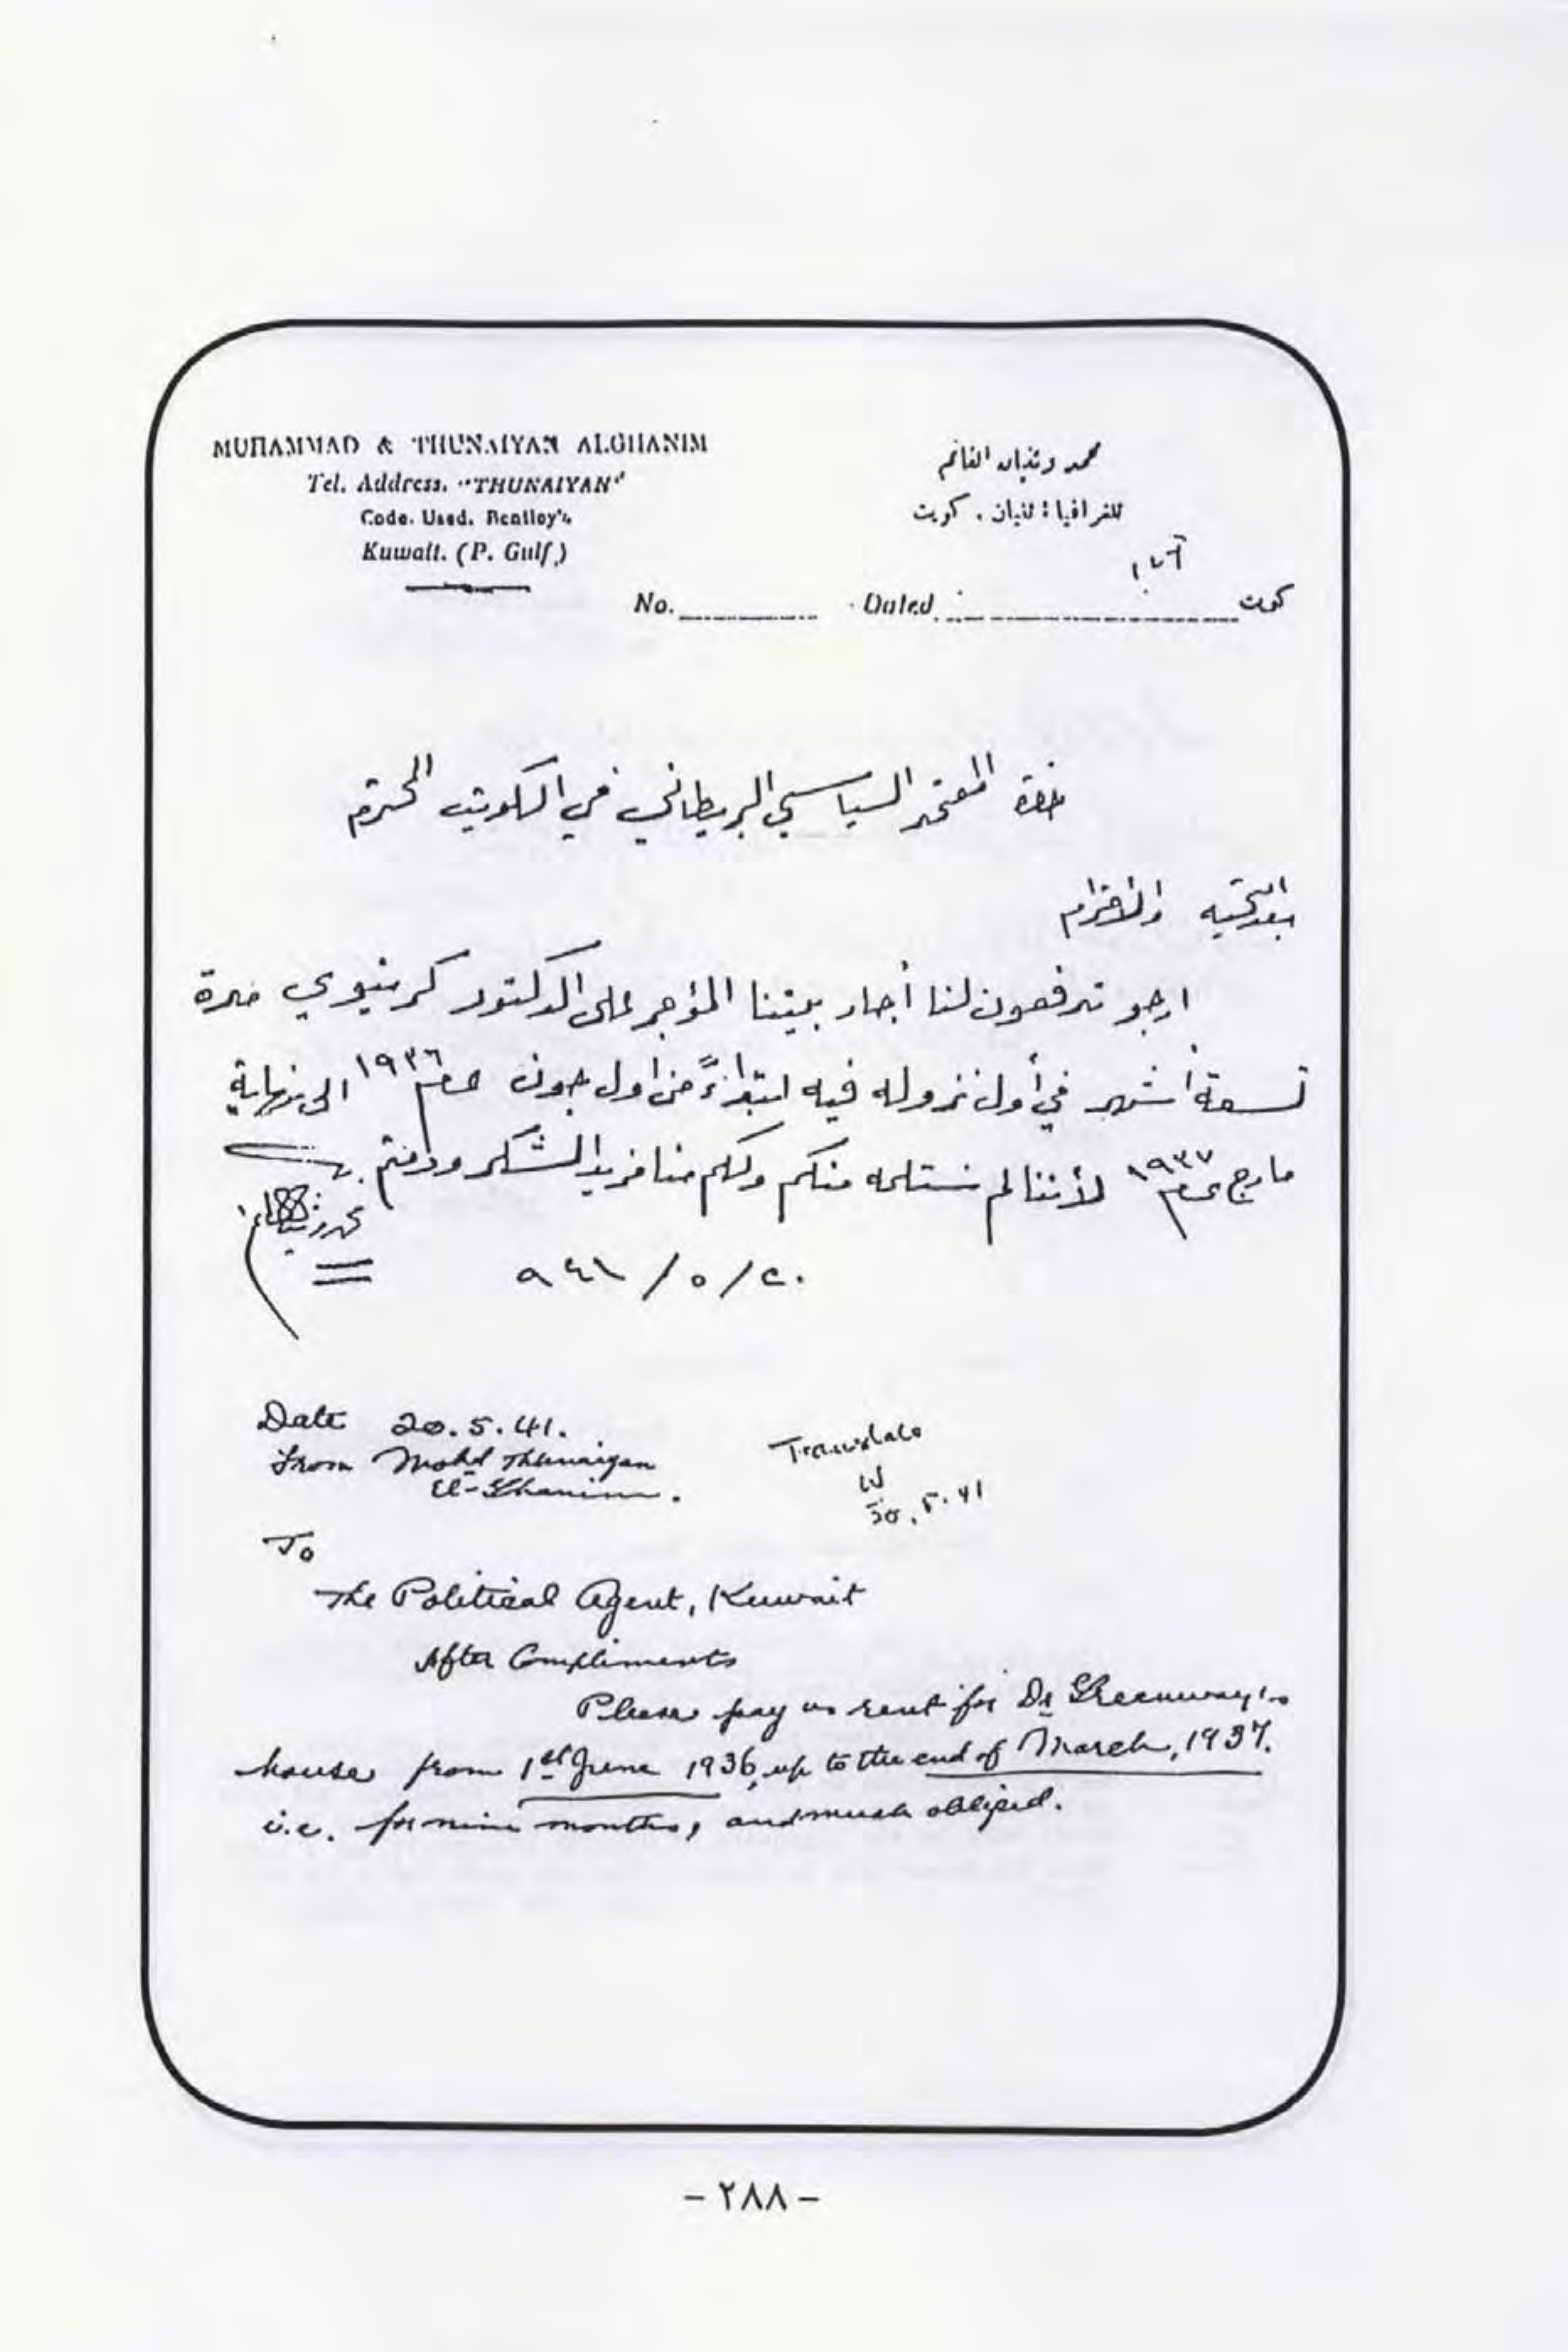 MUHAMMAD & THUNAIYAN ALGHANIM
Tel. Address. "THUNAIYAN"
Code. Used. Bentley's
Kuwait. (P. Gulf.)
محمد وثنيان الغانم
تلغرافيا : ثنيان . كويت
No. Dated كويت
حضرة المعتمد السياسي البريطاني في الكويت المحترم
بعد التحيه والاحترام
ارجو تدفعون لنا أجار بيتنا المؤجر على الدكتور كرينوي مدة
تسعة أشهر في أول نزوله فيه ابتداءً من اول جون ١٩٣٦ الى نهاية
مارج ١٩٣٧ لأننا لم نستلمه منكم ولكم منا مزيد الشكر ودمتم
٢٠/٥/٩٤١
Date 20.5.41.
From Mohd Thunaiyan
El-Ghanim.
Translate
20.5.41
To
The Political Agent, Kuwait
After Compliments
Please pay us rent for Dr Greenway's
house from 1st June 1936, up to the end of March, 1937.
i.e. for nine months, and much obliged.
- ٢٨٨ -